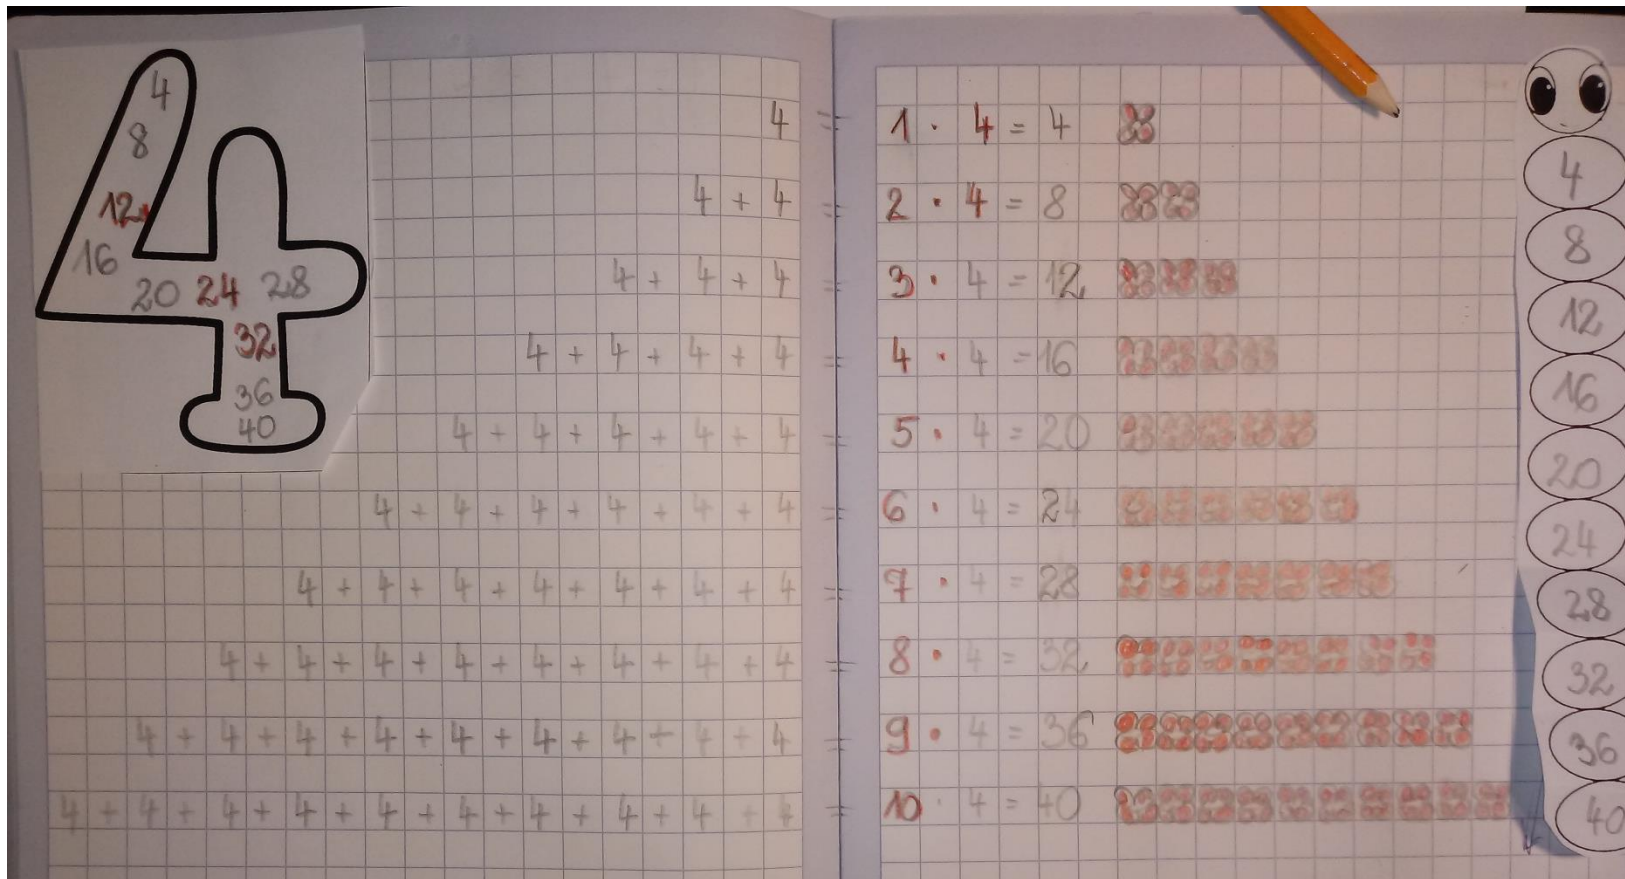 4
8
12
16
20 24 28
32
36
40
4 = 1 · 4 = 4
4 + 4 = 2 · 4 = 8
4 + 4 + 4 = 3 · 4 = 12
4 + 4 + 4 + 4 = 4 · 4 = 16
4 + 4 + 4 + 4 + 4 = 5 · 4 = 20
4 + 4 + 4 + 4 + 4 + 4 = 6 · 4 = 24
4 + 4 + 4 + 4 + 4 + 4 + 4 = 7 · 4 = 28
4 + 4 + 4 + 4 + 4 + 4 + 4 + 4 = 8 · 4 = 32
4 + 4 + 4 + 4 + 4 + 4 + 4 + 4 + 4 = 9 · 4 = 36
4 + 4 + 4 + 4 + 4 + 4 + 4 + 4 + 4 + 4 = 10 · 4 = 40
4
8
12
16
20
24
28
32
36
40